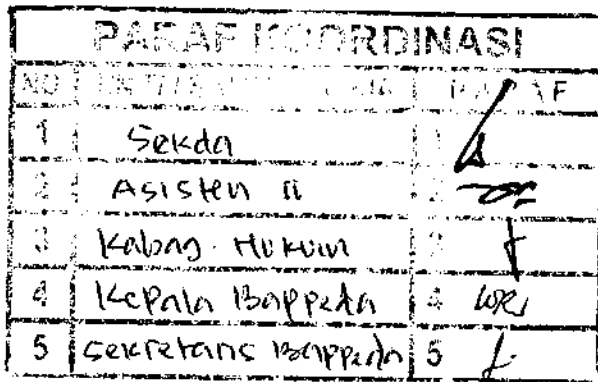 PARAF KOORDINASI
NO PARAF
1 Sekda 1
2 Asisten II 2
3 Kabag. Hukum 3
4 Kepala Bappeda 4
5 Sekretaris Bappeda 5